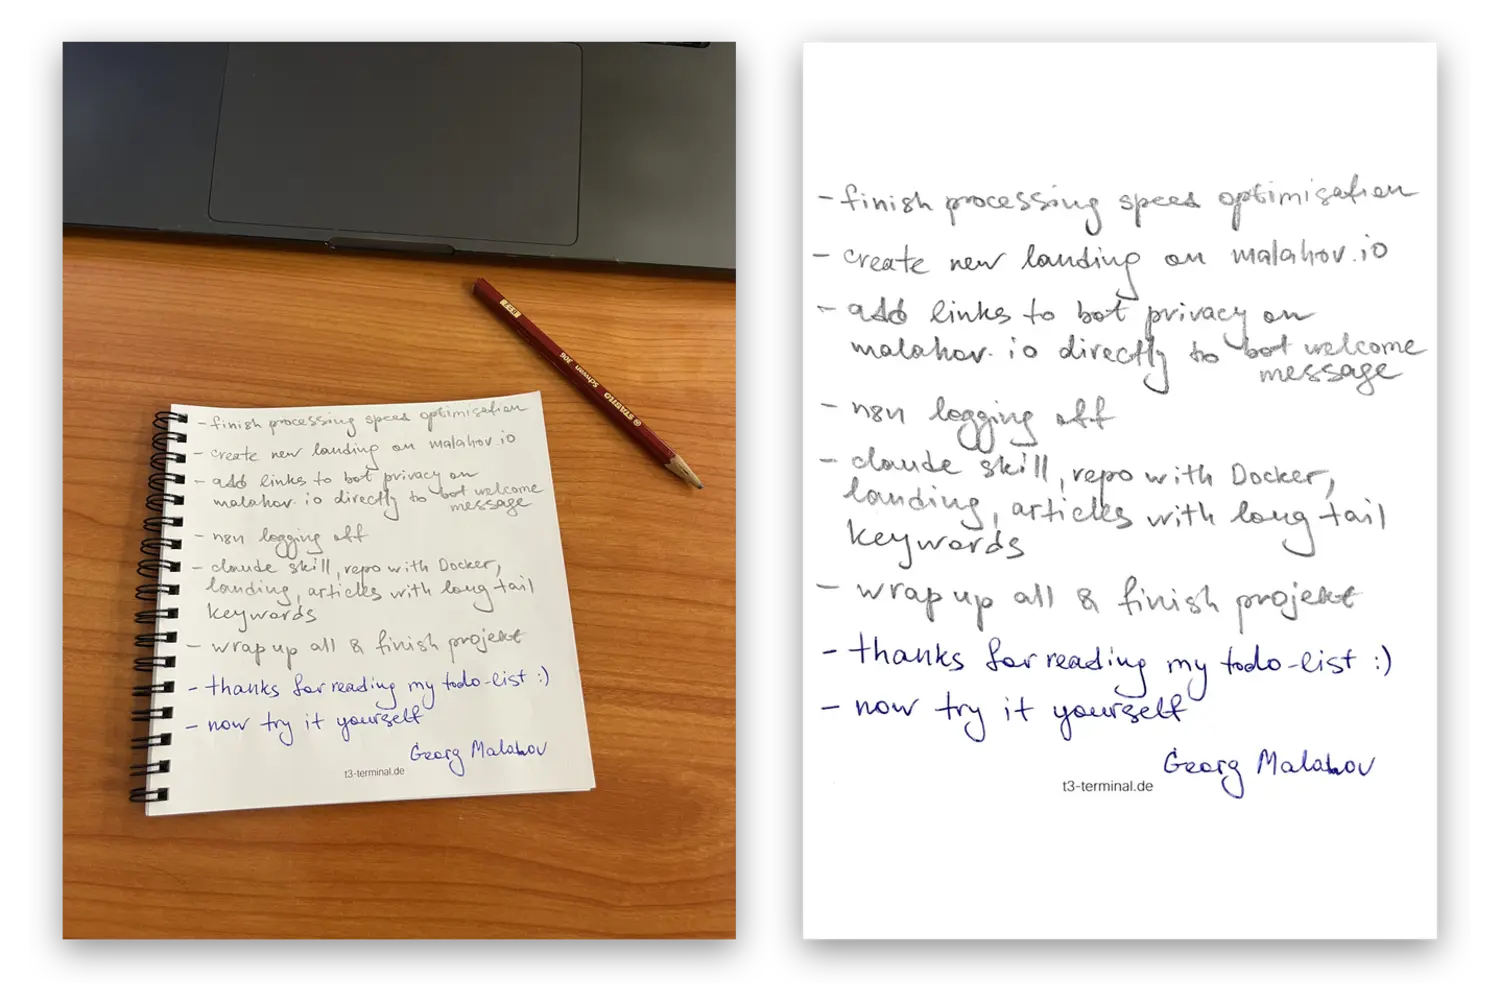 - finish processing speed optimisation
- create new landing on malahov.io
- add links to bot privacy on
malahov.io directly to bot welcome
message
- n8n logging off
- claude skill, repo with Docker,
landing, articles with long tail
keywords
- wrap up all & finish projekt
- thanks for reading my todo-list :)
- now try it yourself
Georg Malahov
t3-terminal.de
- finish processing speed optimisation
- create new landing on malahov.io
- add links to bot privacy on
malahov.io directly to bot welcome
message
- n8n logging off
- claude skill, repo with Docker,
landing, articles with long tail
keywords
- wrap up all & finish projekt
- thanks for reading my todo-list :)
- now try it yourself
Georg Malahov
t3-terminal.de